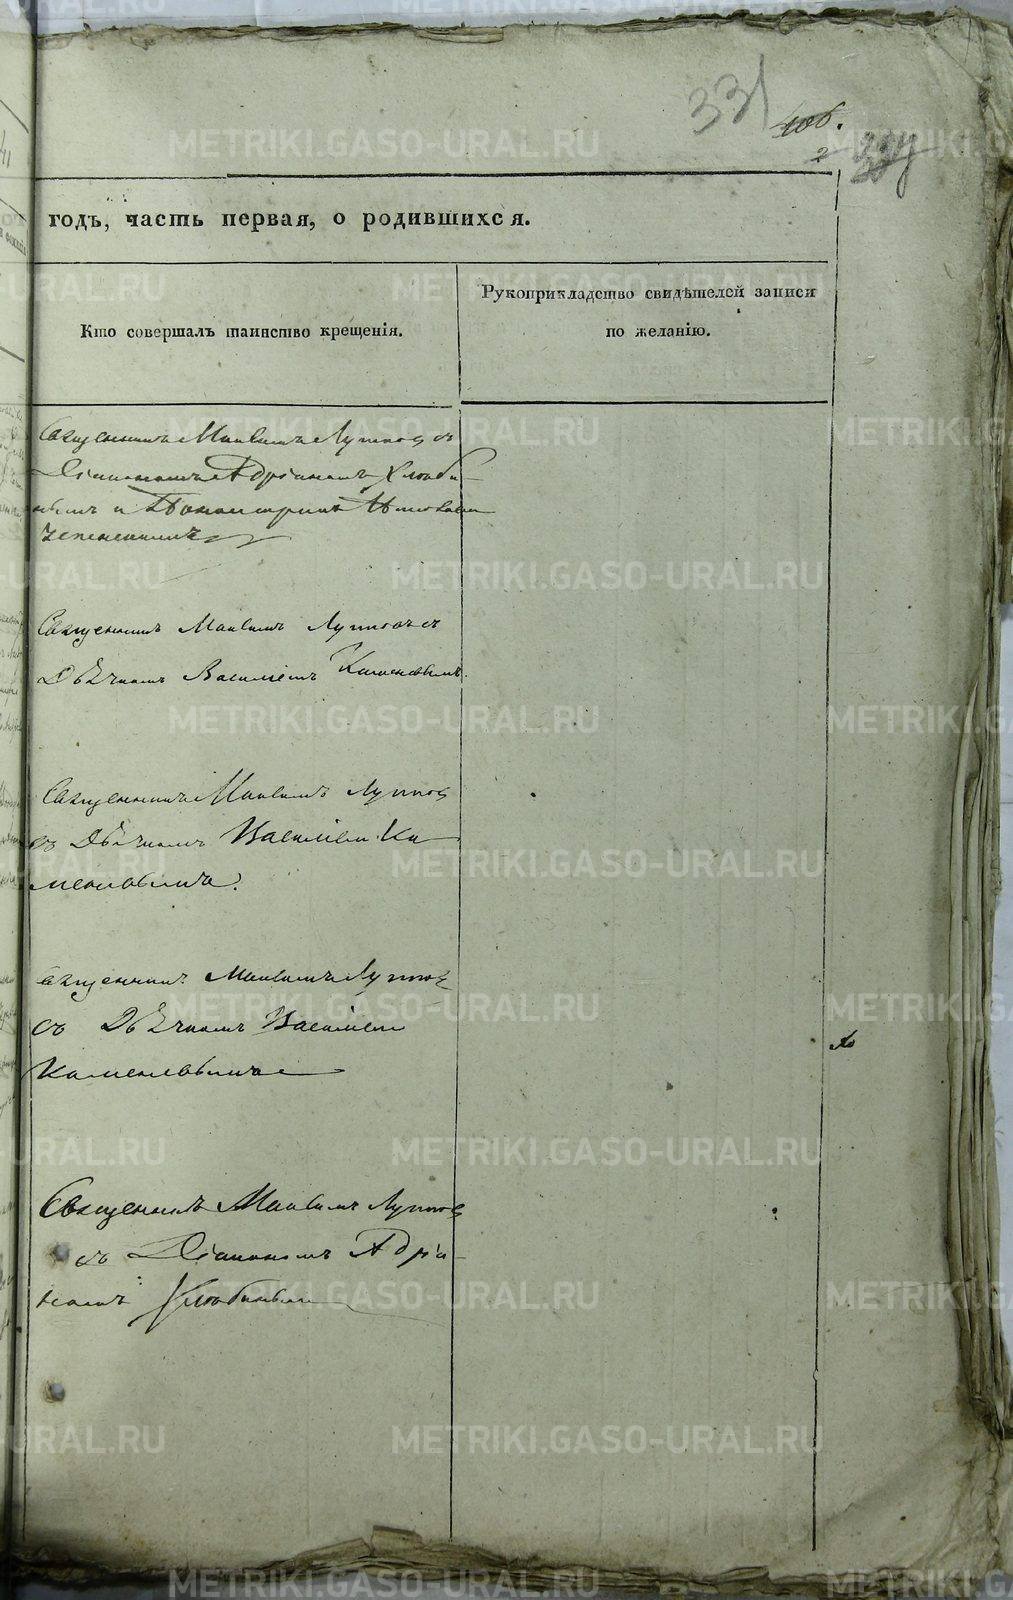 331
406.
2
годъ, часть первая, о родившихся.
Кто совершалъ таинство крещенія.
Рукоприкладство свидѣтелей записи
по желанію.
Священникъ Максимъ Луппов съ
Діакономъ Адріаномъ Хлюби-
нымъ и Пономаремъ
Священникъ Максимъ Лупповъ съ
Дьячкомъ Василіемъ Каменскимъ.
Священникъ Максимъ Луппов
съ Дьячкомъ Василіем Ка
менскимъ.
Священникъ Максимъ Луппов
съ Дьячкомъ Василіем
Каменскимъ
Священникъ Максимъ Луппов
съ Діакономъ Адріа-
номъ Хлюбиным
METRIKI.GASO-URAL.RU